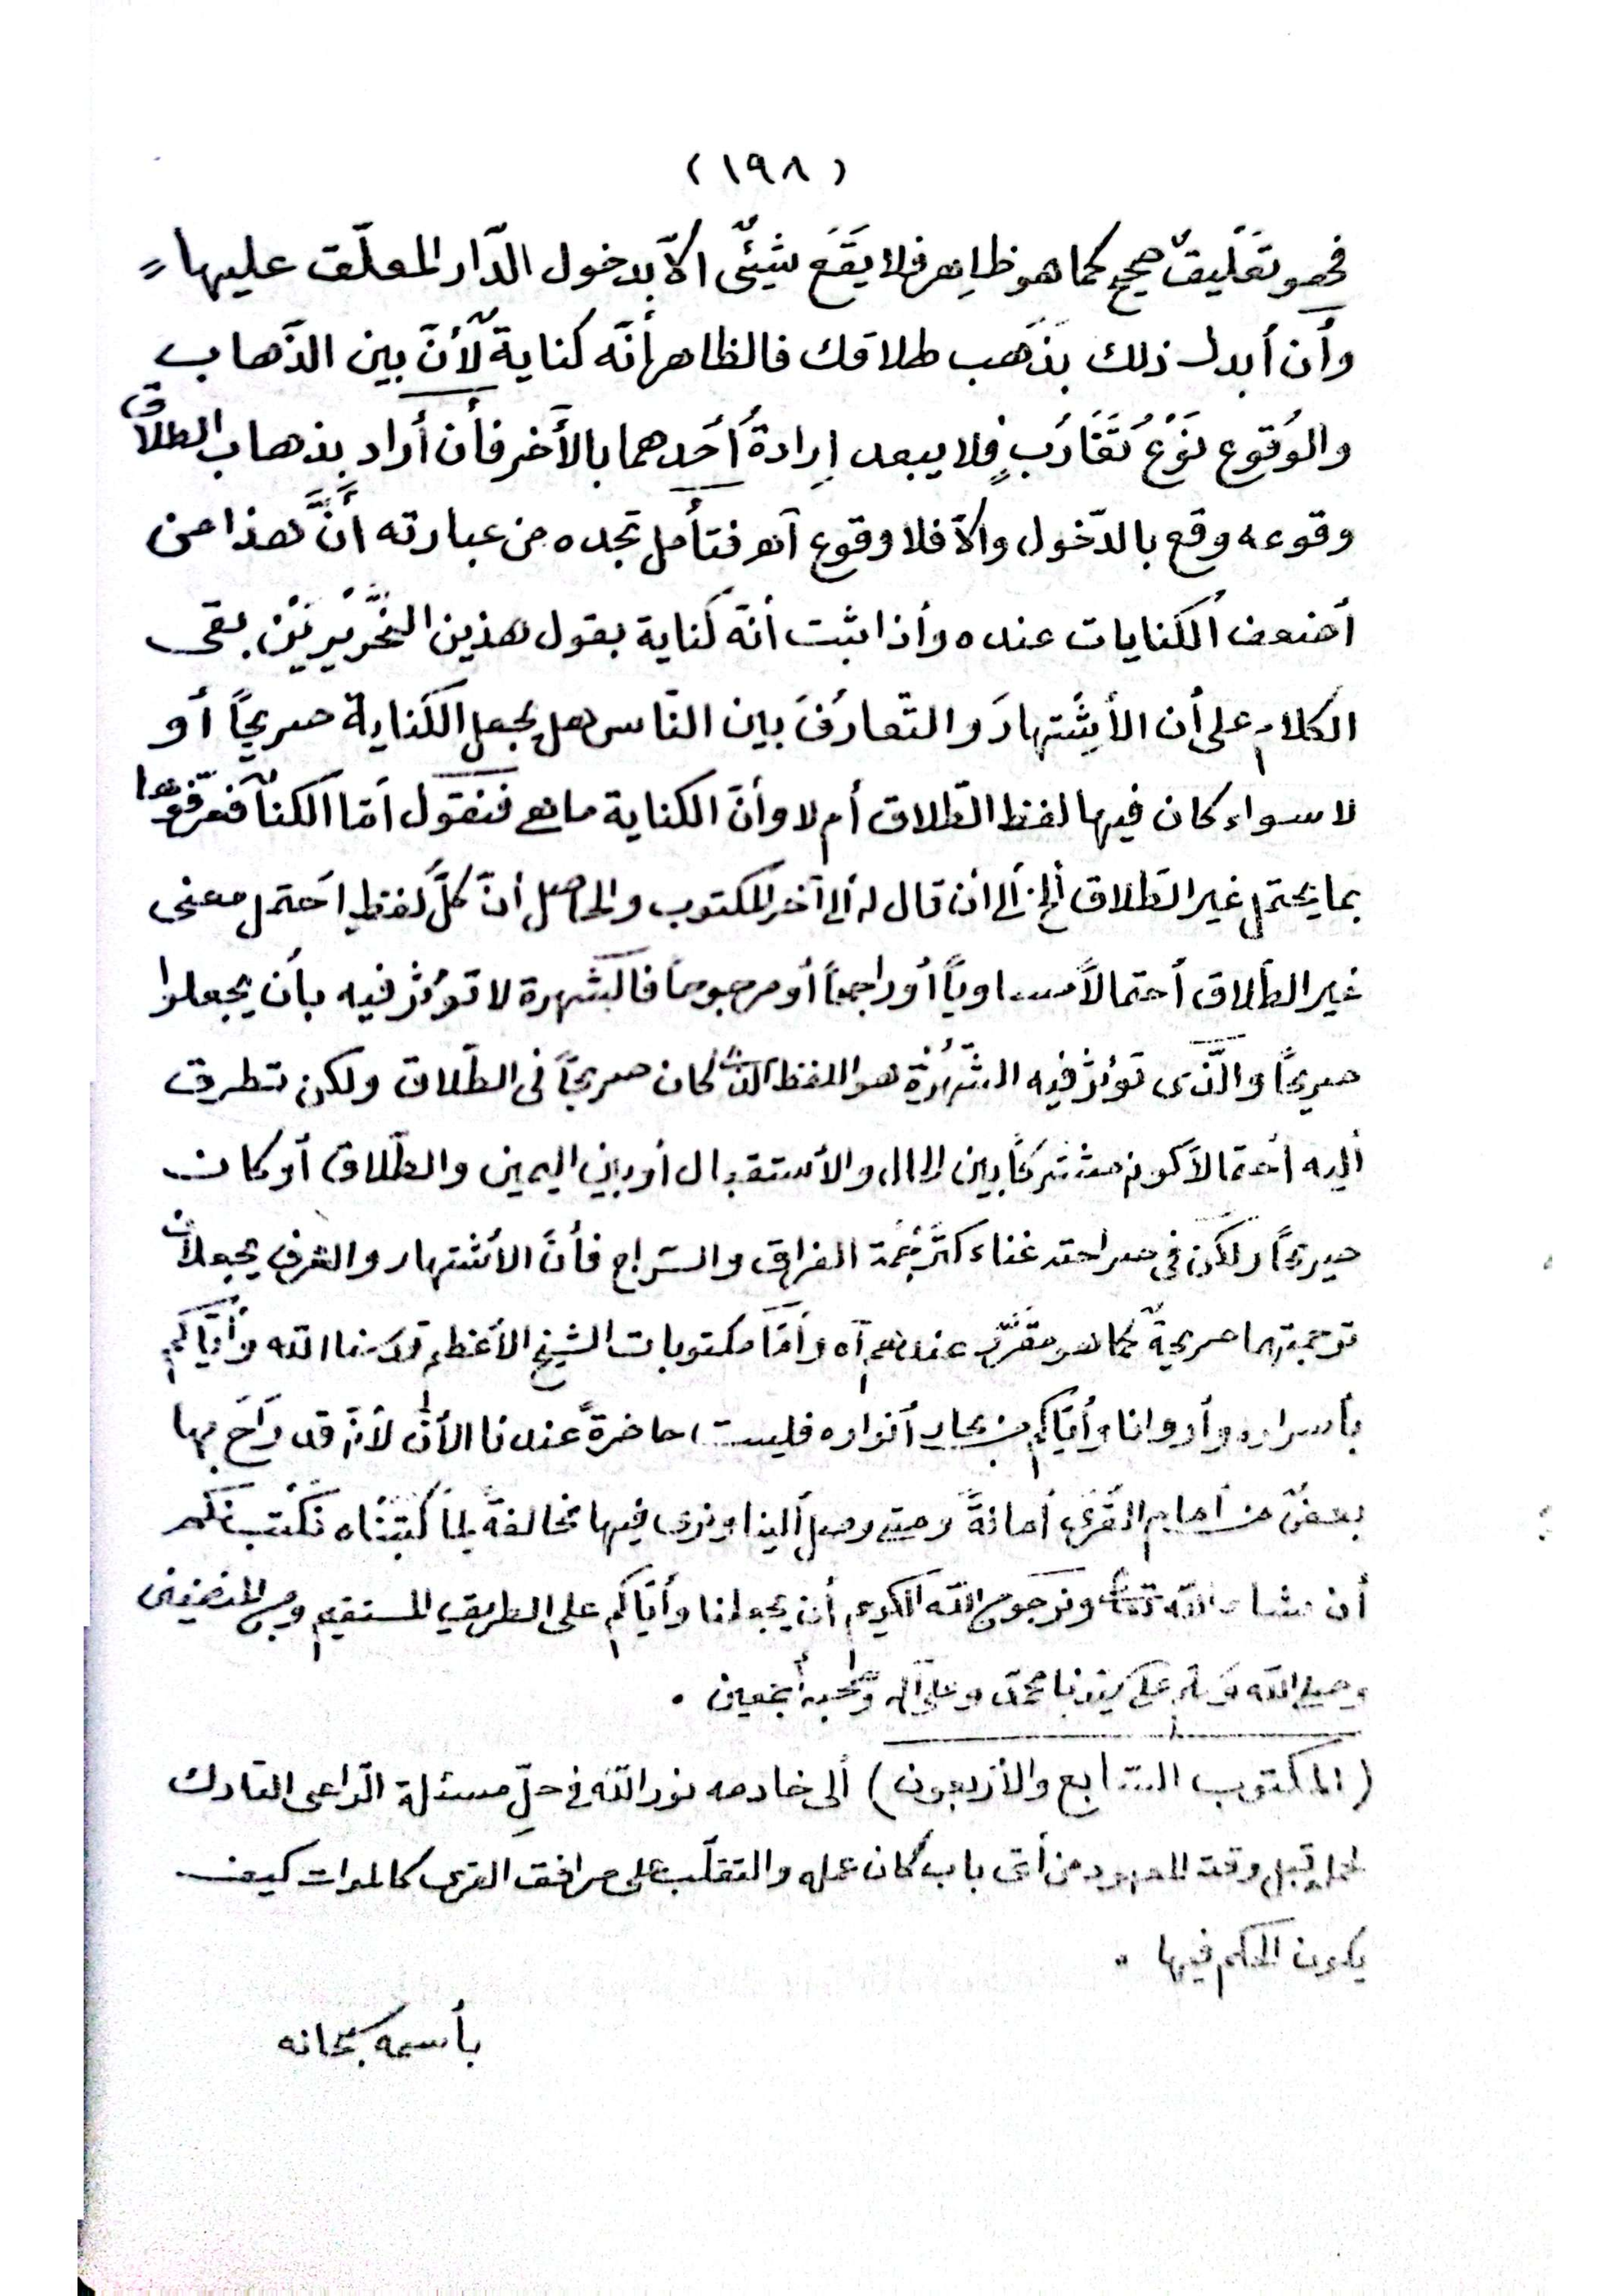 (١٩٨)
فهو تَعْلِيقٌ صحيح كما هو ظاهر فلا يَقَع شيئٌ الّا بدخول الدّار المعلّق عليها
وأن أبدل ذلك بذَهب طلاقك فالظاهر أنّه كناية لأنّ بين الذّهاب
والوُقوع نَوْعُ تَقَارُبٍ فلا يبعد إرادةُ أَحَدهما بالأخر فأن أراد بذهاب الطلاق
وقوعه وقع بالدّخول والّا فلا وقوع آه فتأمل تجده من عبارته أنَّ هذا من
أضعف الكنايات عنده وأذا ثبت أنّه كناية بقول هذين النِّحْرِيْرَيْنِ بقى
الكلام على أن الأشتهارَ والتّعارُفَ بين النّاس هل يجعل الكناية صريحًا أو
لا سواء كان فيها لفظ الطّلاق أم لا وأنّ الكناية ما هى فنقول أمّا الكناية فعرّفوها
بما يحتمل غير الطّلاق ألخ ألى أن قال له ألى آخر المكتوب والحاصل أنّ كلّ لفظٍ احتمل معنى
غير الطّلاق أحتمالاً مساوياً أو راجحاً أو مرجوحاً فالشّهرة لا تؤثر فيه بأن يجعلوا
صريحاً والّذى تؤثر فيه الشُّهْرَة هو اللفظ الذى كان صريحاً فى الطّلاق ولكن تطرق
أليه أحتمالاً كونه مشتركاً بين الحال والأستقبال أو بين اليمين والطّلاق أو كان
صريحاً ولكن فى صراحته خفاء كترجمة الفراق والسّراح فأنّ الأشتهار والعرف يجعلان
ترجمتهما صريحةً كما هو مقرّر عندهم آه وأمّا مكتوبات الشيخ الأعظم قدّسنا الله وأيّاكم
بأسراره وأروانا وأيّاكم من بحار أنواره فليست حاضرةً عندنا الأن لأنّه قد رَاحَ بها
بعضٌ من أمام القُرى أمانةً ومتى وصل ألينا ونرى فيها مخالفةً لما كتبناه نكتب لكم
أن شاء الله تعالى ونرجو من الله الكريم أن يجعلنا وأيّاكم على الطريق المستقيم ومن المنصفين
وصلى الله وسلم على سيّدنا محمّد وعلى آله وصحبه أجمعين .
(المكتوب السّابع والأربعون) ألى خادمه نورالله فى حلّ مسئلة الرّاعى التارك
لعمله قبل وقته المعهود من أىّ باب كان عمله والتغلّب على مرافق القرى كالموات كيف
يكون الحكم فيها ..
بأسمه سبحانه